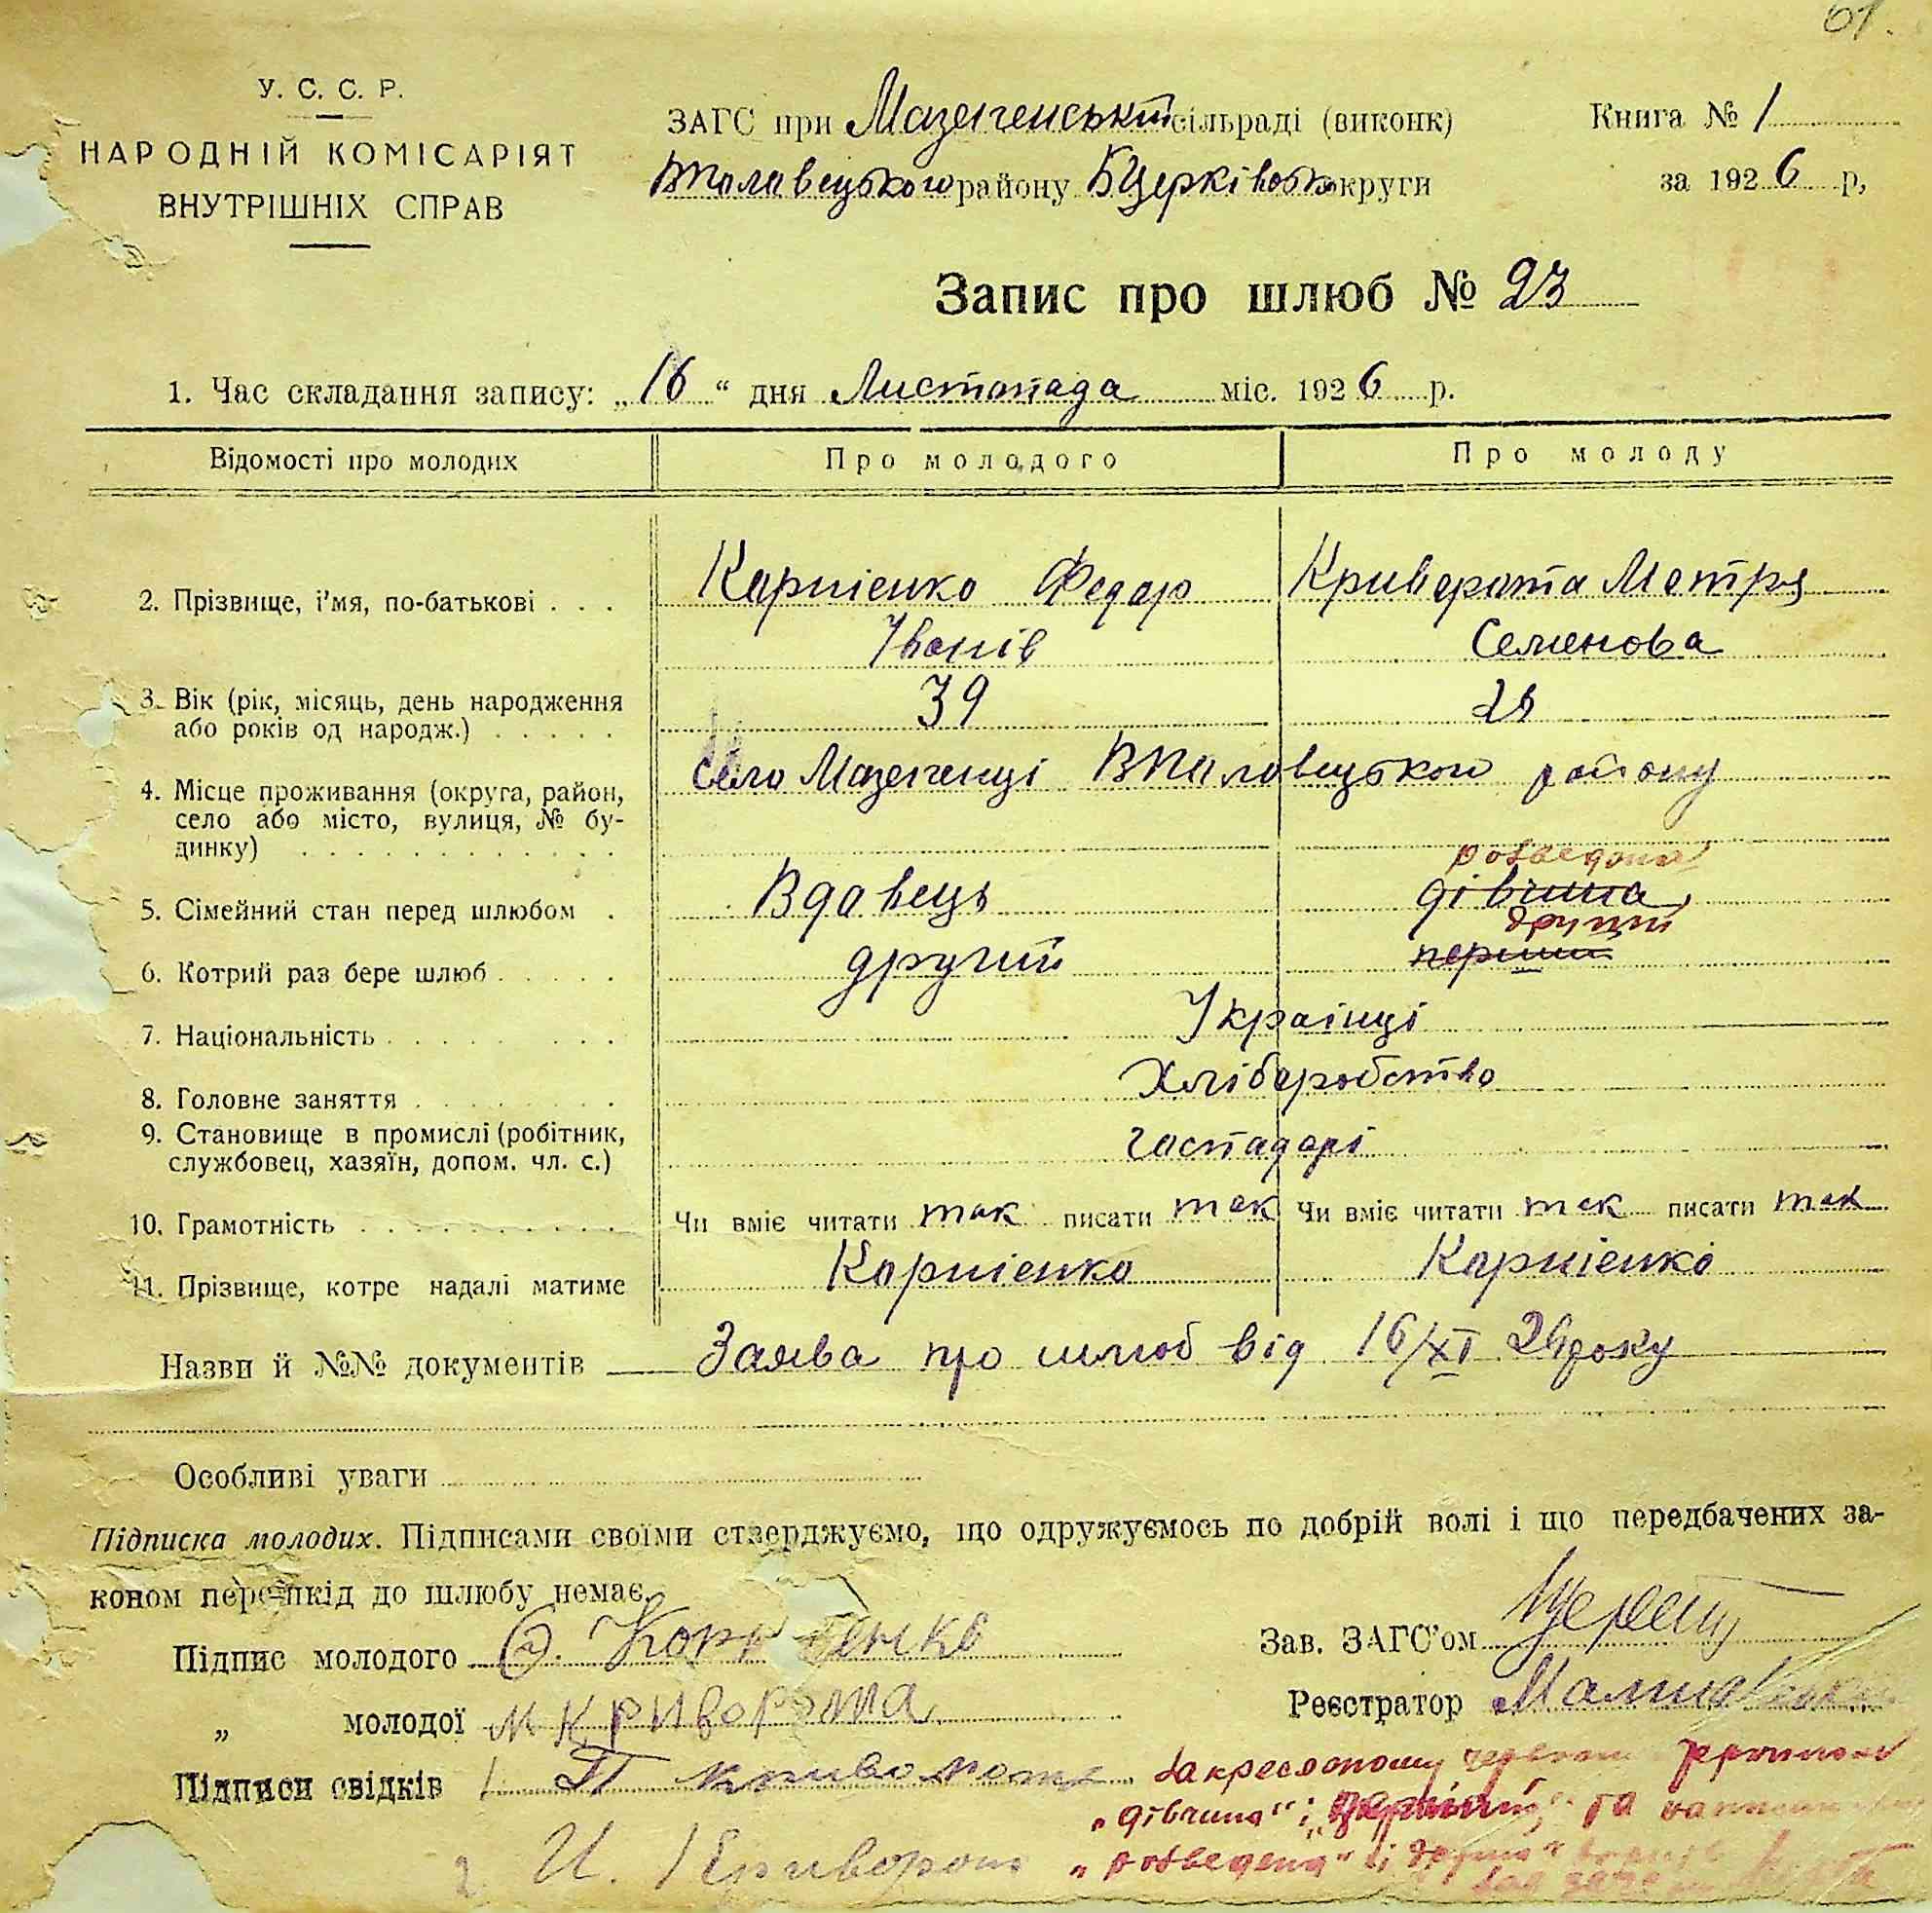 61.
У. С. С. Р.
НАРОДНІЙ КОМІСАРІЯТ
ВНУТРІШНІХ СПРАВ
ЗАГС при Мазепенській сільраді (виконк)
району БЦерківської округи
Книга № 1
за 1926 р,
Запис про шлюб № 23
1. Час складання запису: „16“ дня Листопада міс. 1926 р.
Відомості про молодих
Про молодого
Про молоду
2. Прізвище, і'мя, по-батькові . . .
Карпієнко Федор
Іванів
Криворота Мотря
Семенова
3. Вік (рік, місяць, день народження
або років од народж.) . . . . .
39
28
4. Місце проживання (округа, район,
село або місто, вулиця, № бу-
динку) . . . . . . . . . . . .
Село Мазепенці району
5. Сімейний стан перед шлюбом .
Вдовець
розведена
дівчина
6. Котрий раз бере шлюб . . . . .
другий
другий
перший
7. Національність . . . . . . . .
Українці
8. Головне заняття . . . . . . . .
Хліборобство
9. Становище в промислі (робітник,
службовец, хазяїн, допом. чл. с.)
господарі
10. Грамотність . . . . . . . . . .
Чи вміє читати так писати так
Чи вміє читати так писати так
11. Прізвище, котре надалі матиме
Карпієнко
Карпієнко
Назви й №№ документів Заява про шлюб від 16/XI 26 року
Особливі уваги
Підписка молодих. Підписами своїми стверджуємо, що одружуємось по добрій волі і що передбачених за-
коном перешкід до шлюбу немає.
Підпис молодого Ф. Карпієнко
Зав. ЗАГС'ом
„ молодої М Криворота
Реєстратор
Підписи свідків 1
„дівчина“ і „перший“ та
2 И. Криворот
„розведена“ і „другий“